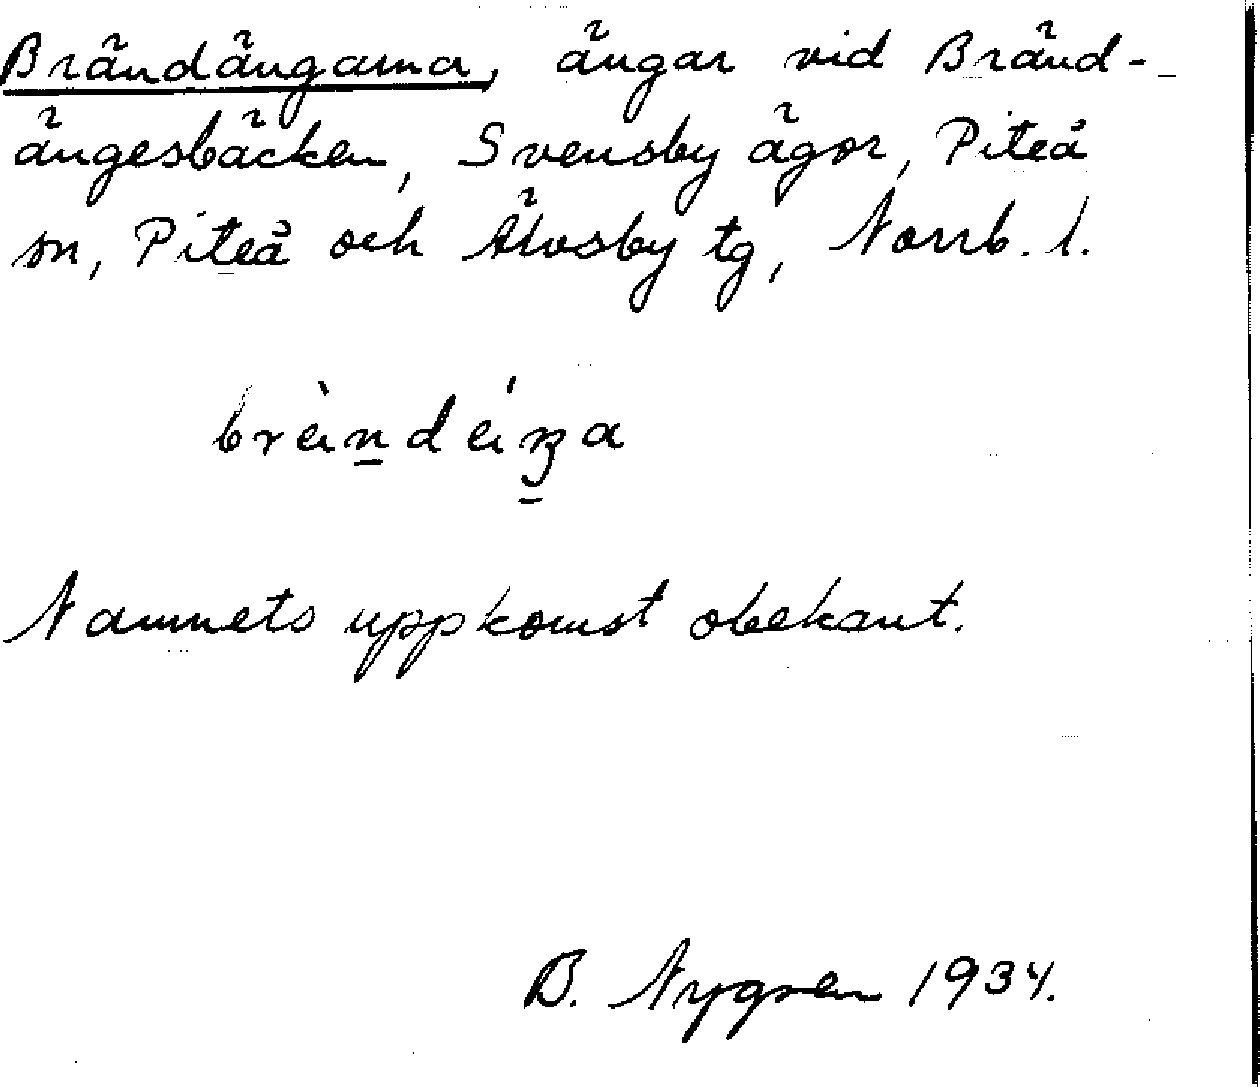 Brändängarna, ängar vid Bränd-
ängesbäcken, Svensby ägor, Piteå
sn, Piteå och Älvsby tg, Norrb. l.
Namnets uppkomst obekant.
B. Nygren 1934.